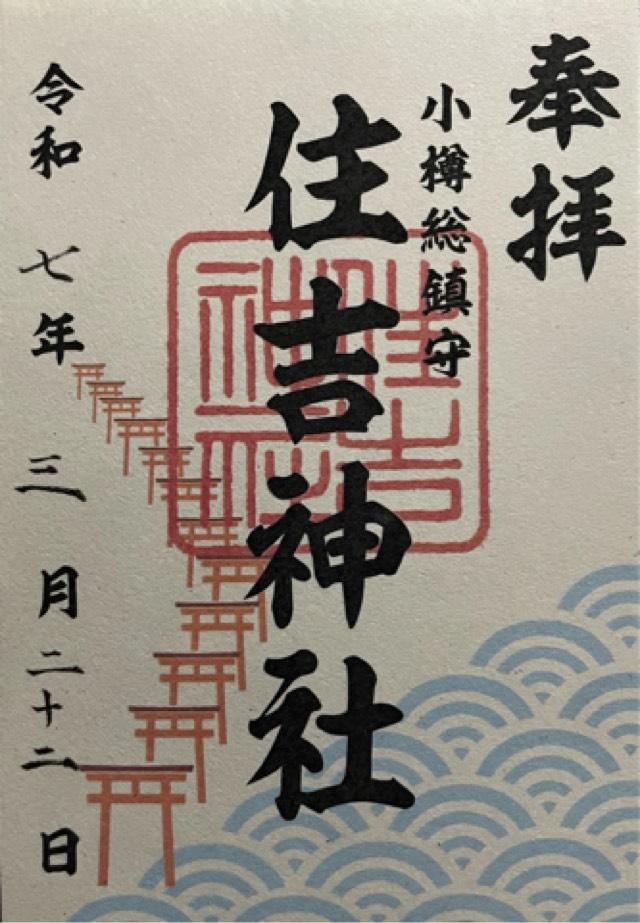 奉拝
小樽総鎮守
住吉神社
住吉神社
令和七年三月二十二日